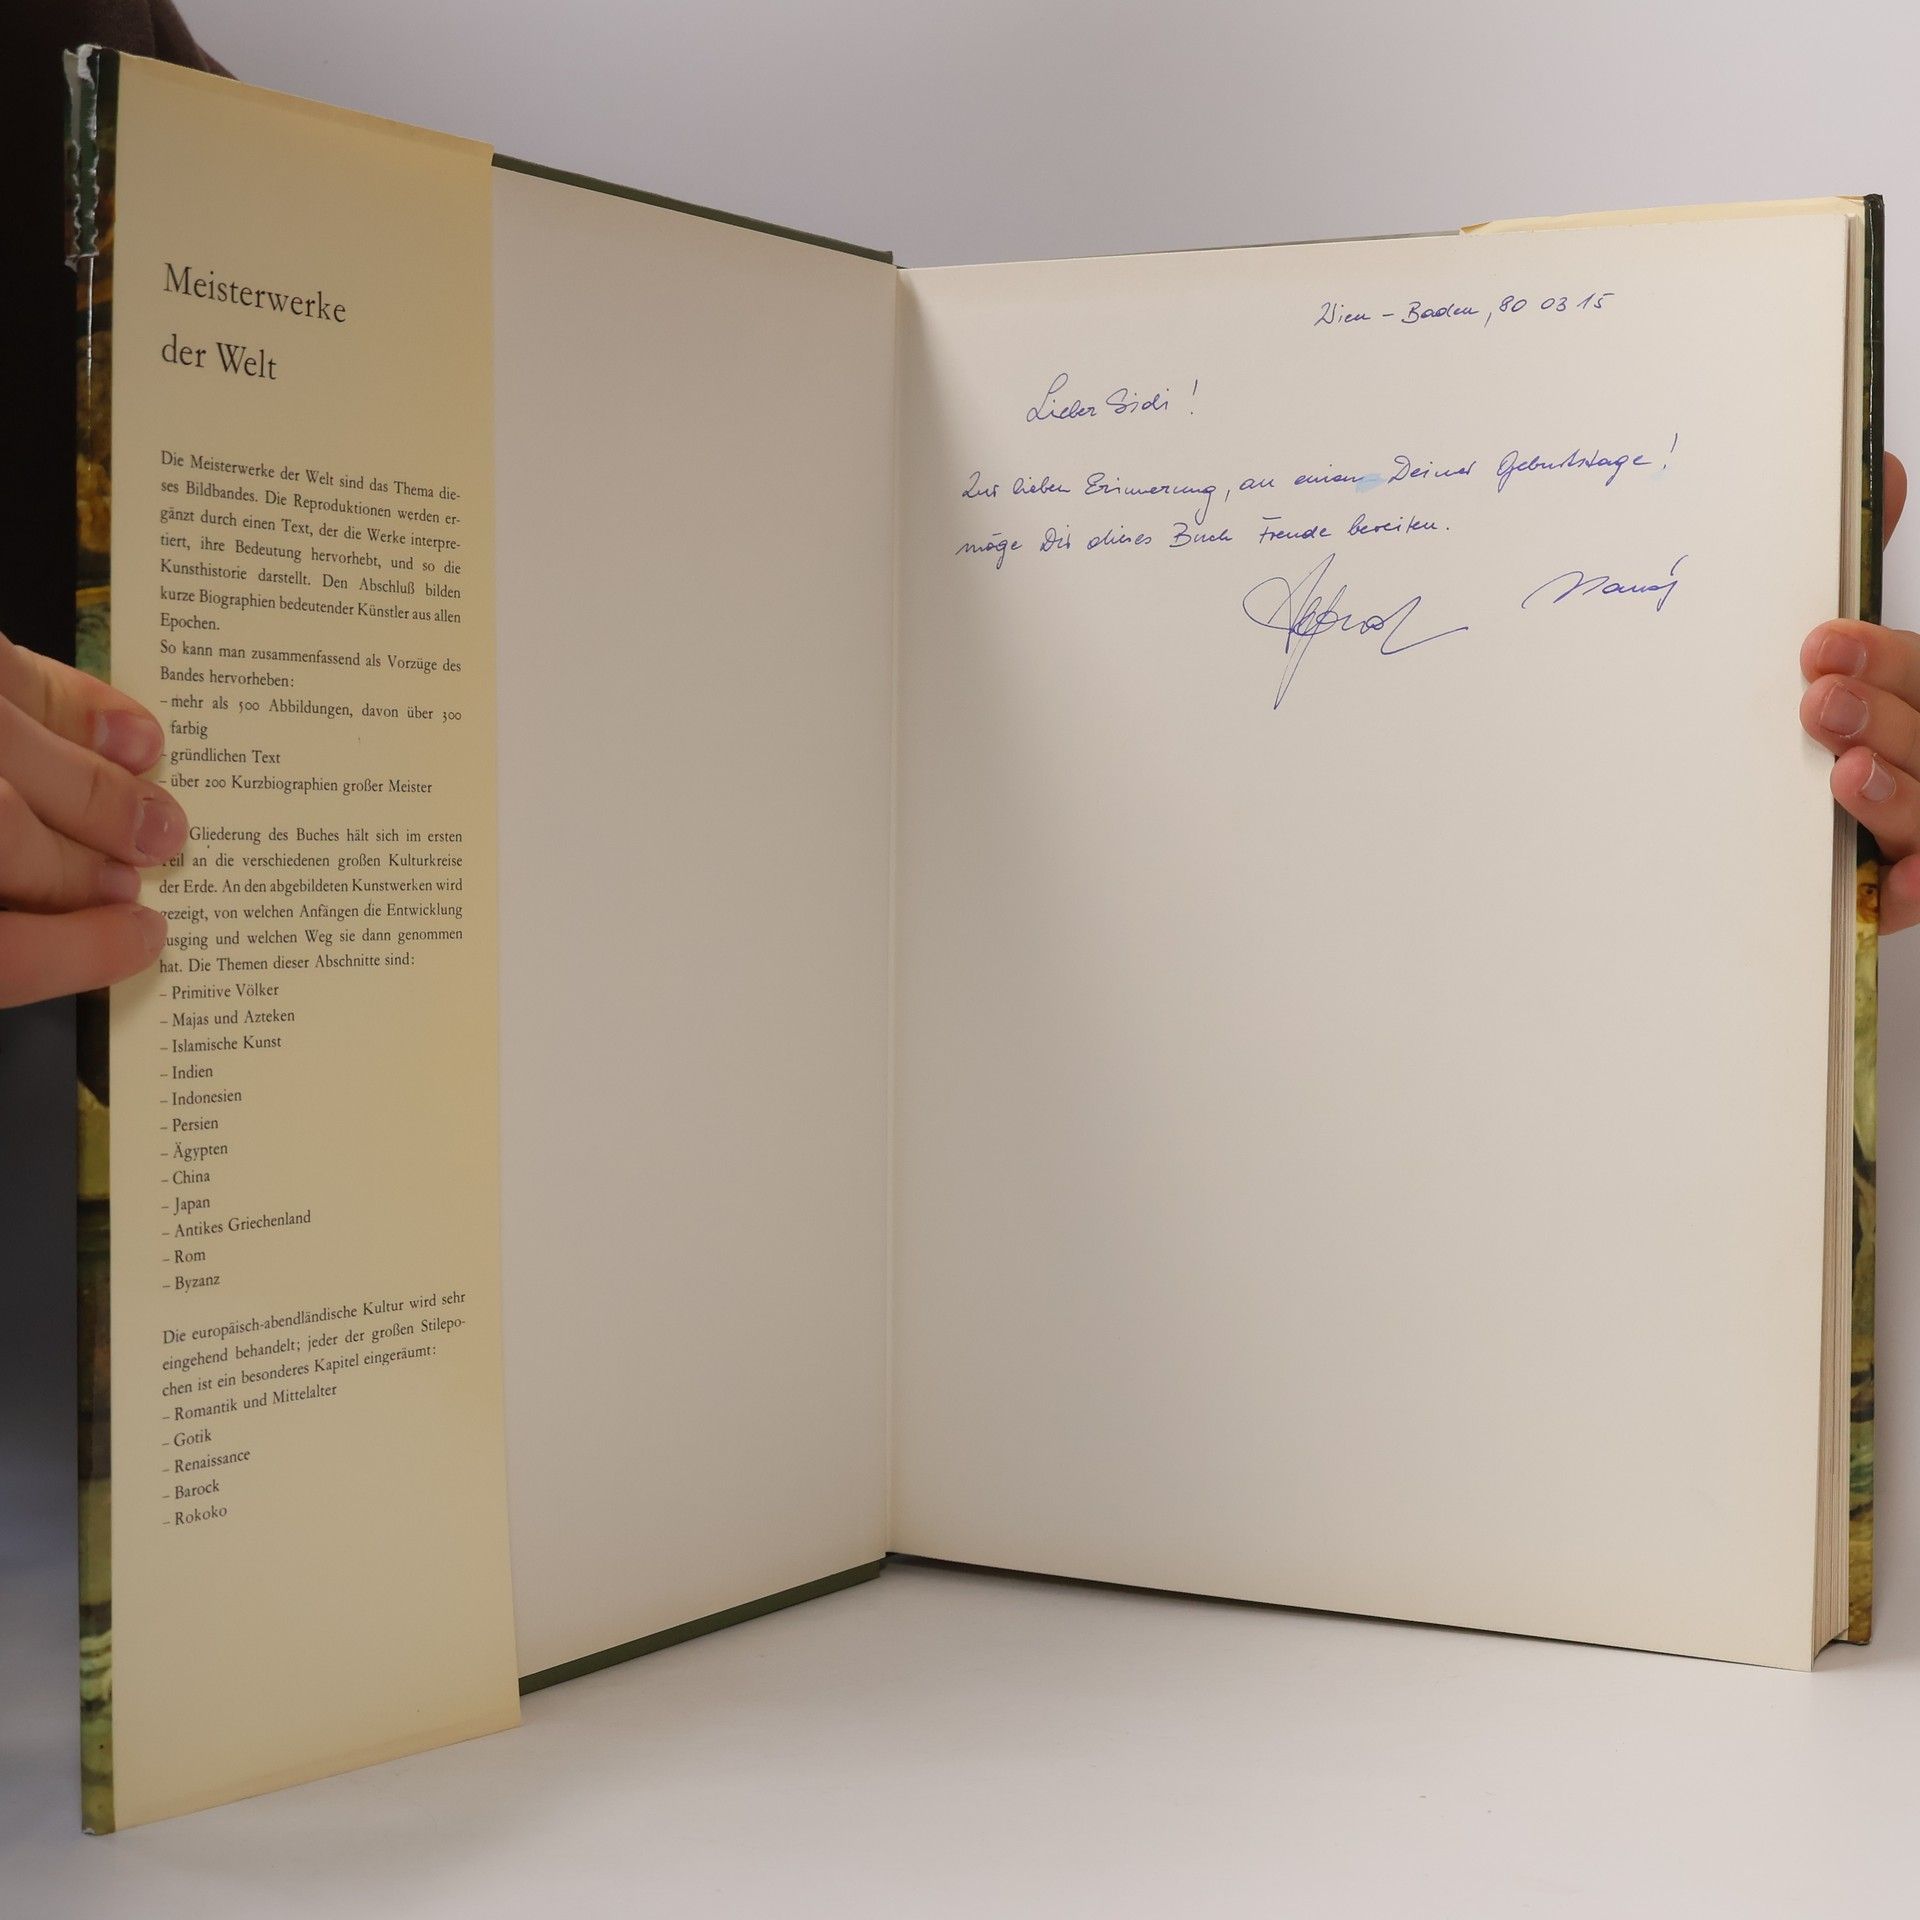 Meisterwerke
der Welt
Die Meisterwerke der Welt sind das Thema die-
ses Bildbandes. Die Reproduktionen werden er-
gänzt durch einen Text, der die Werke interpre-
tiert, ihre Bedeutung hervorhebt, und so die
Kunsthistorie darstellt. Den Abschluß bilden
kurze Biographien bedeutender Künstler aus allen
Epochen.
So kann man zusammenfassend als Vorzüge des
Bandes hervorheben:
– mehr als 500 Abbildungen, davon über 300
farbig
– gründlichen Text
– über 200 Kurzbiographien großer Meister
Gliederung des Buches hält sich im ersten
eil an die verschiedenen großen Kulturkreise
der Erde. An den abgebildeten Kunstwerken wird
gezeigt, von welchen Anfängen die Entwicklung
usging und welchen Weg sie dann genommen
hat. Die Themen dieser Abschnitte sind:
– Primitive Völker
– Majas und Azteken
– Islamische Kunst
– Indien
– Indonesien
– Persien
– Ägypten
– China
– Japan
– Antikes Griechenland
– Rom
– Byzanz
Die europäisch-abendländische Kultur wird sehr
eingehend behandelt; jeder der großen Stilepo-
chen ist ein besonderes Kapitel eingeräumt:
– Romantik und Mittelalter
– Gotik
– Renaissance
– Barock
– Rokoko
Wien – Baden, 80 03 15
Lieber Sidi !
Zur lieben Erinnerung, an einen Deiner Geburtstage !
möge Dir dieses Buch Freude bereiten.